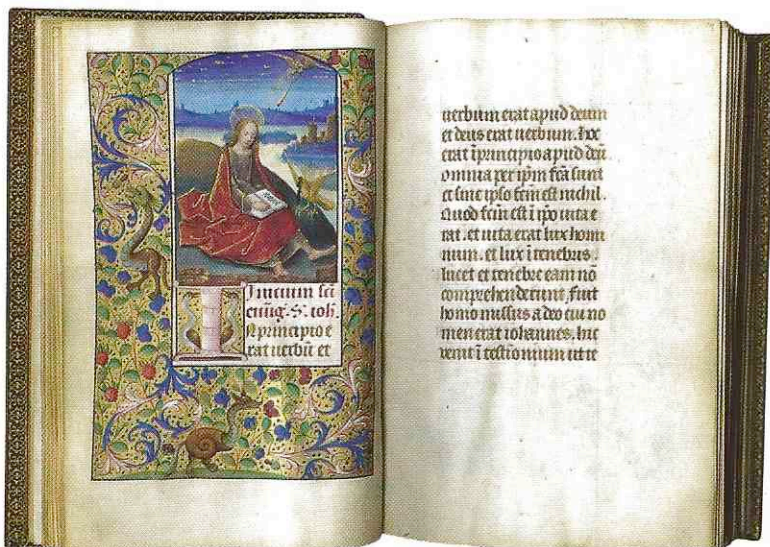 Inicium sci
euñg. S. ioh.
In principio e
rat uerbũ et
uerbum erat apud deum
et deus erat uerbum. hoc
erat ĩ principio apud deũ
omnia per ipm fcã sunt
et sine ipso fcm̃ est nichil.
Quod fcm̃ est ĩ ipo uita e
rat. et uita erat lux homi
num. et lux ĩ tenebris
lucet et tenebre eam nõ
comprehenderunt. fuit
homo missus a deo cui no
men erat iohannes. hic
uenit ĩ testĩonium ut te